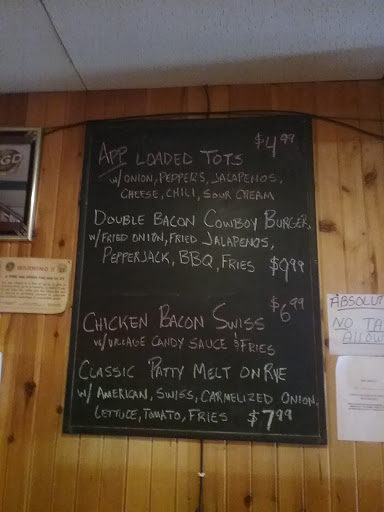 APP LOADED TOTS $4.99
W/ ONION, PEPPERS, JALAPENOS,
CHEESE, CHILI, SOUR CREAM
DOUBLE BACON COWBOY BURGER,
W/ FRIED ONION, FRIED JALAPENOS,
PEPPERJACK, BBQ, FRIES $9.99
$6.99
CHICKEN BACON SWISS
CANDY SAUCE & FRIES
CLASSIC PATTY MELT ON RYE
W/ AMERICAN, SWISS, CARMELIZED ONION,
LETTUCE, TOMATO, FRIES $7.99
WARNING
ABSOLUT
NO TA
ALLOW